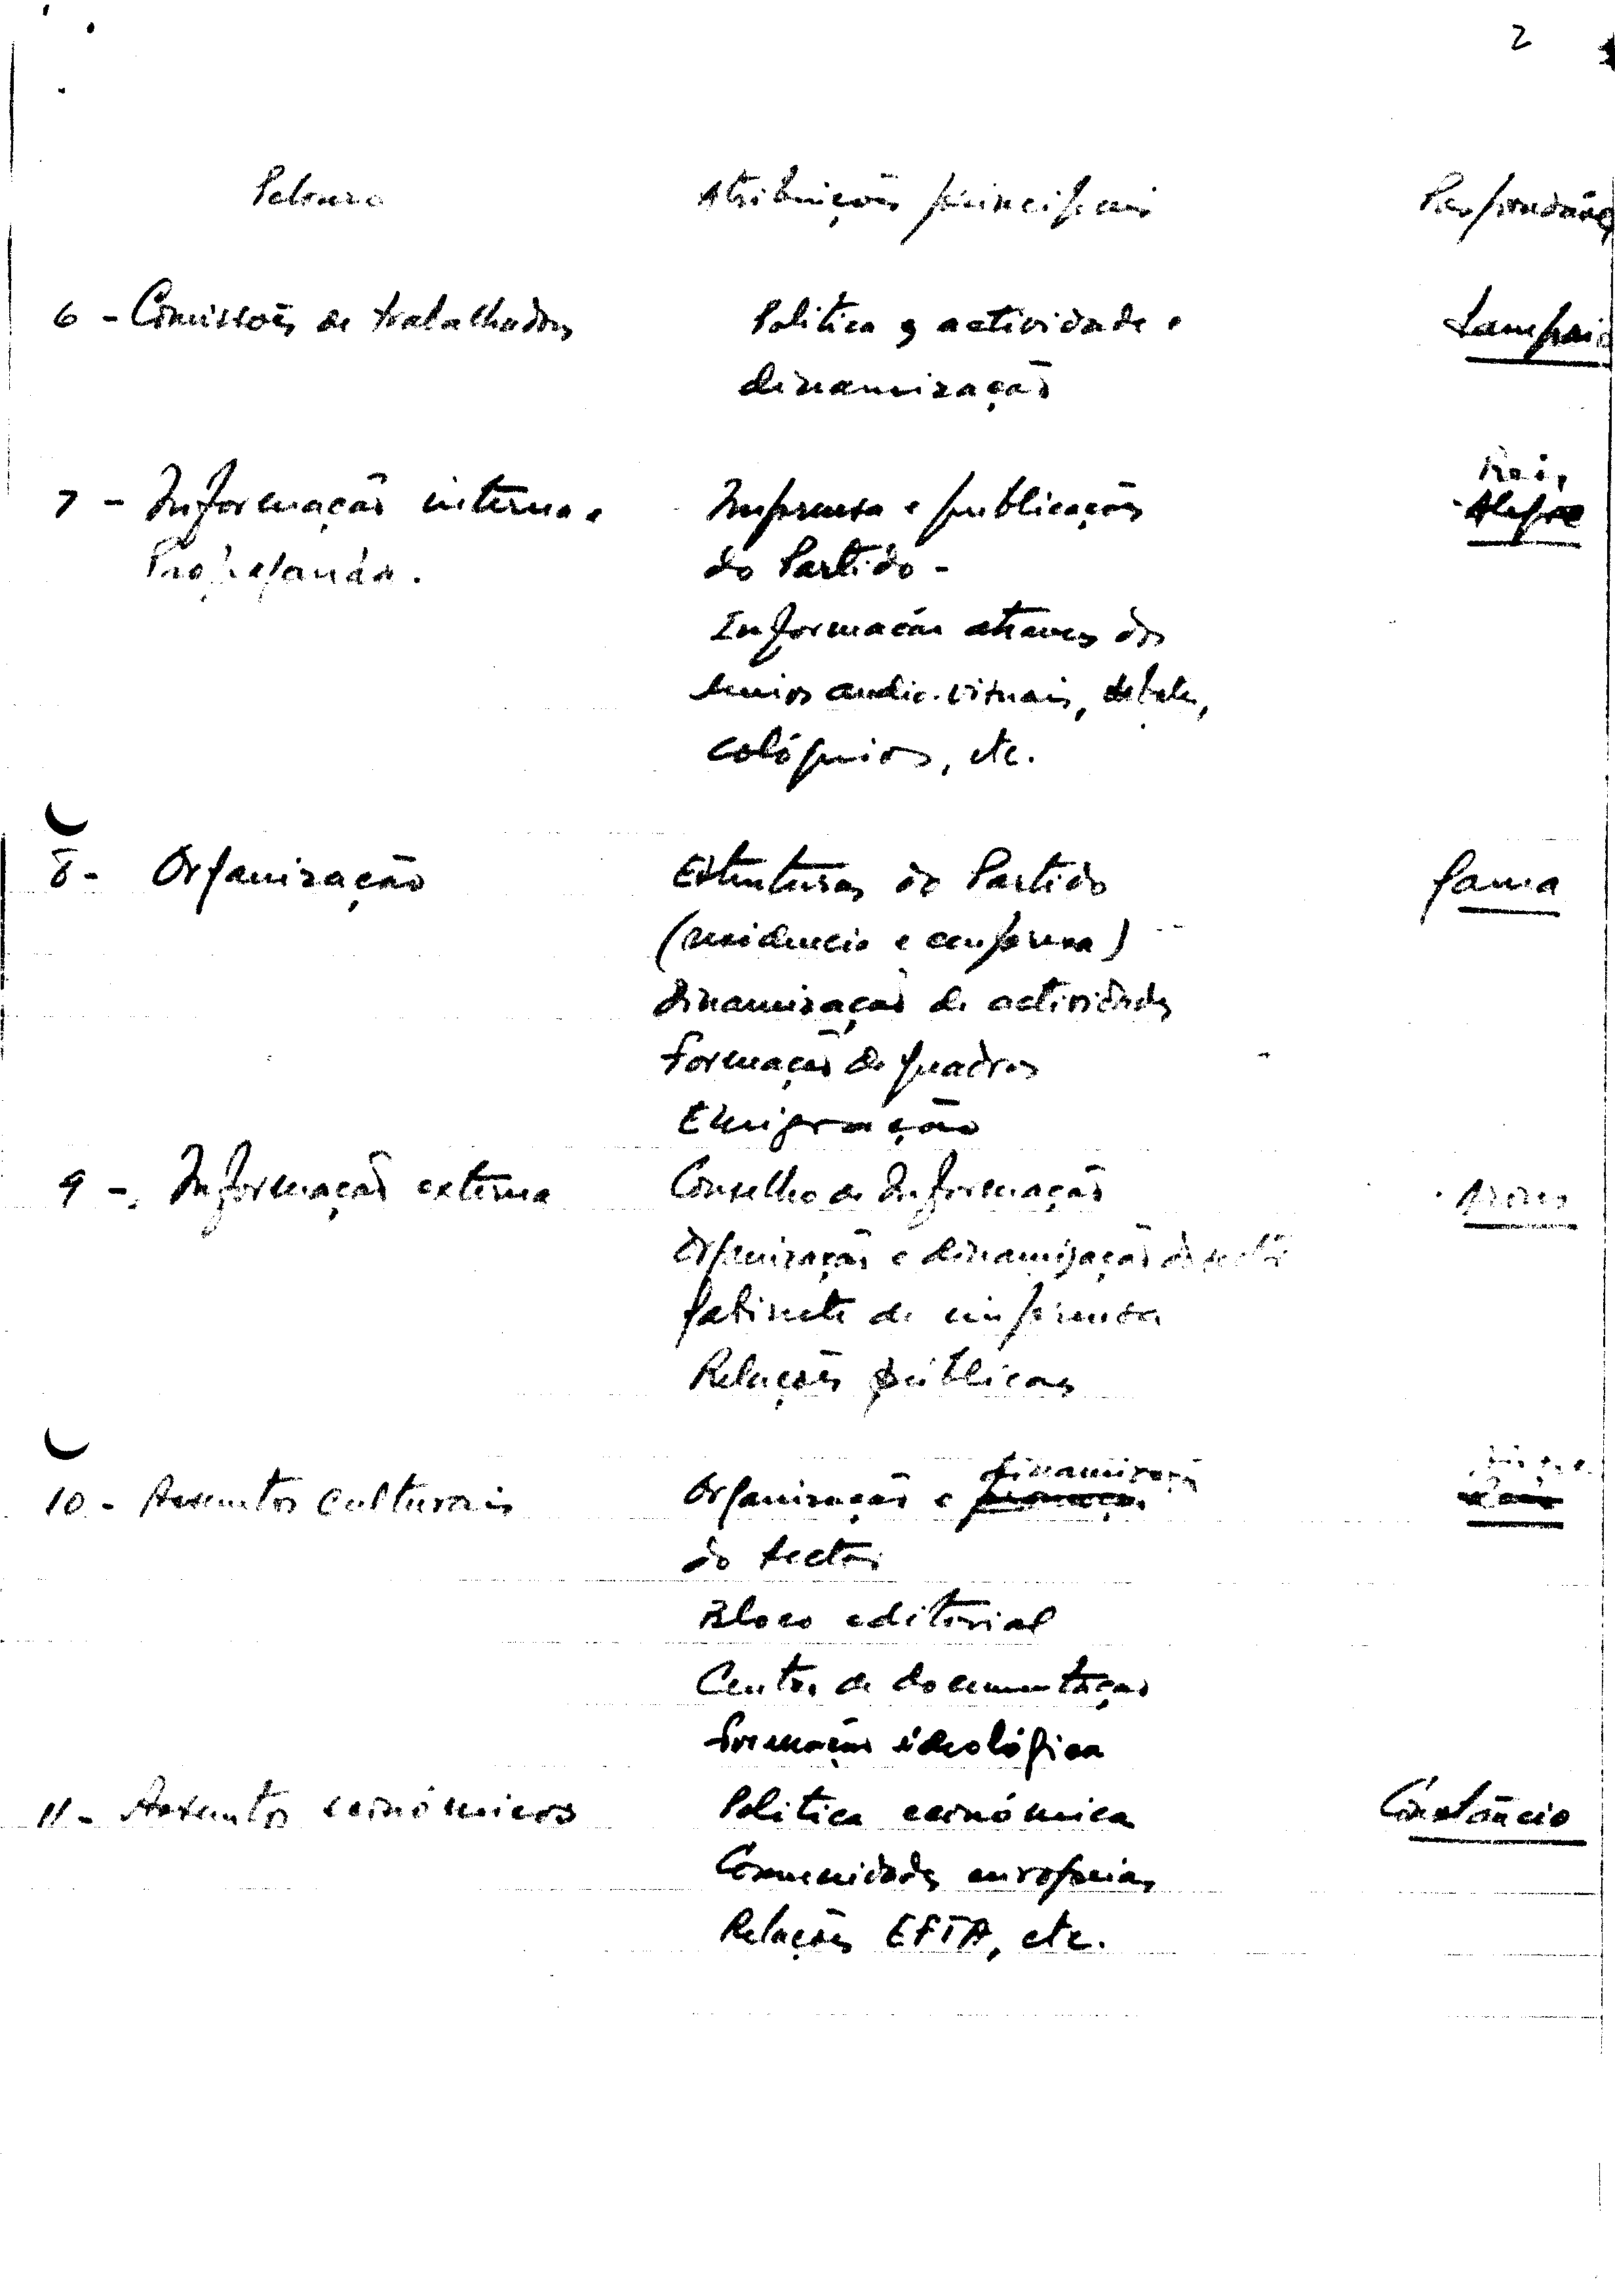 2
Pelouro Atribuições principais
6 - Comissões de trabalhadores Politica, actividade e Sampaio
dinamização
Reis
7 - Informação interna e Imprensa e publicações Alegre
Propaganda. do Partido -
Informação atraves dos
meios audio-visuais, debates,
colóquios, etc.
8 - Organização Estruturas do Partido Gama
(residencia e empresa)
Dinamização de actividades
Formação de quadros
Emigração
9 - Informação externa Conselho de Informação
Organização e dinamização do sector
Gabinete de imprensa
Relações públicas
dinamização
10 - Assuntos culturais Organização e
do sector
Bloco editorial
Centro de documentação
Formação ideológica
11 - Assuntos económicos Politica económica Constâncio
Comunidades europeias
Relações EFTA, etc.